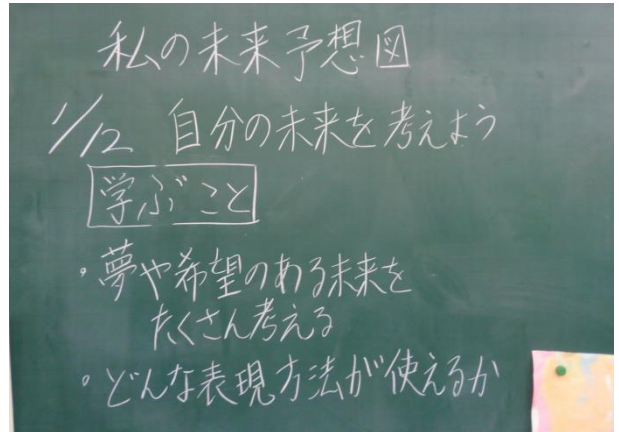 私の未来予想図
1/12 自分の未来を考えよう
学ぶこと
・夢や希望のある未来を
たくさん考える
・どんな表現方法が使えるか